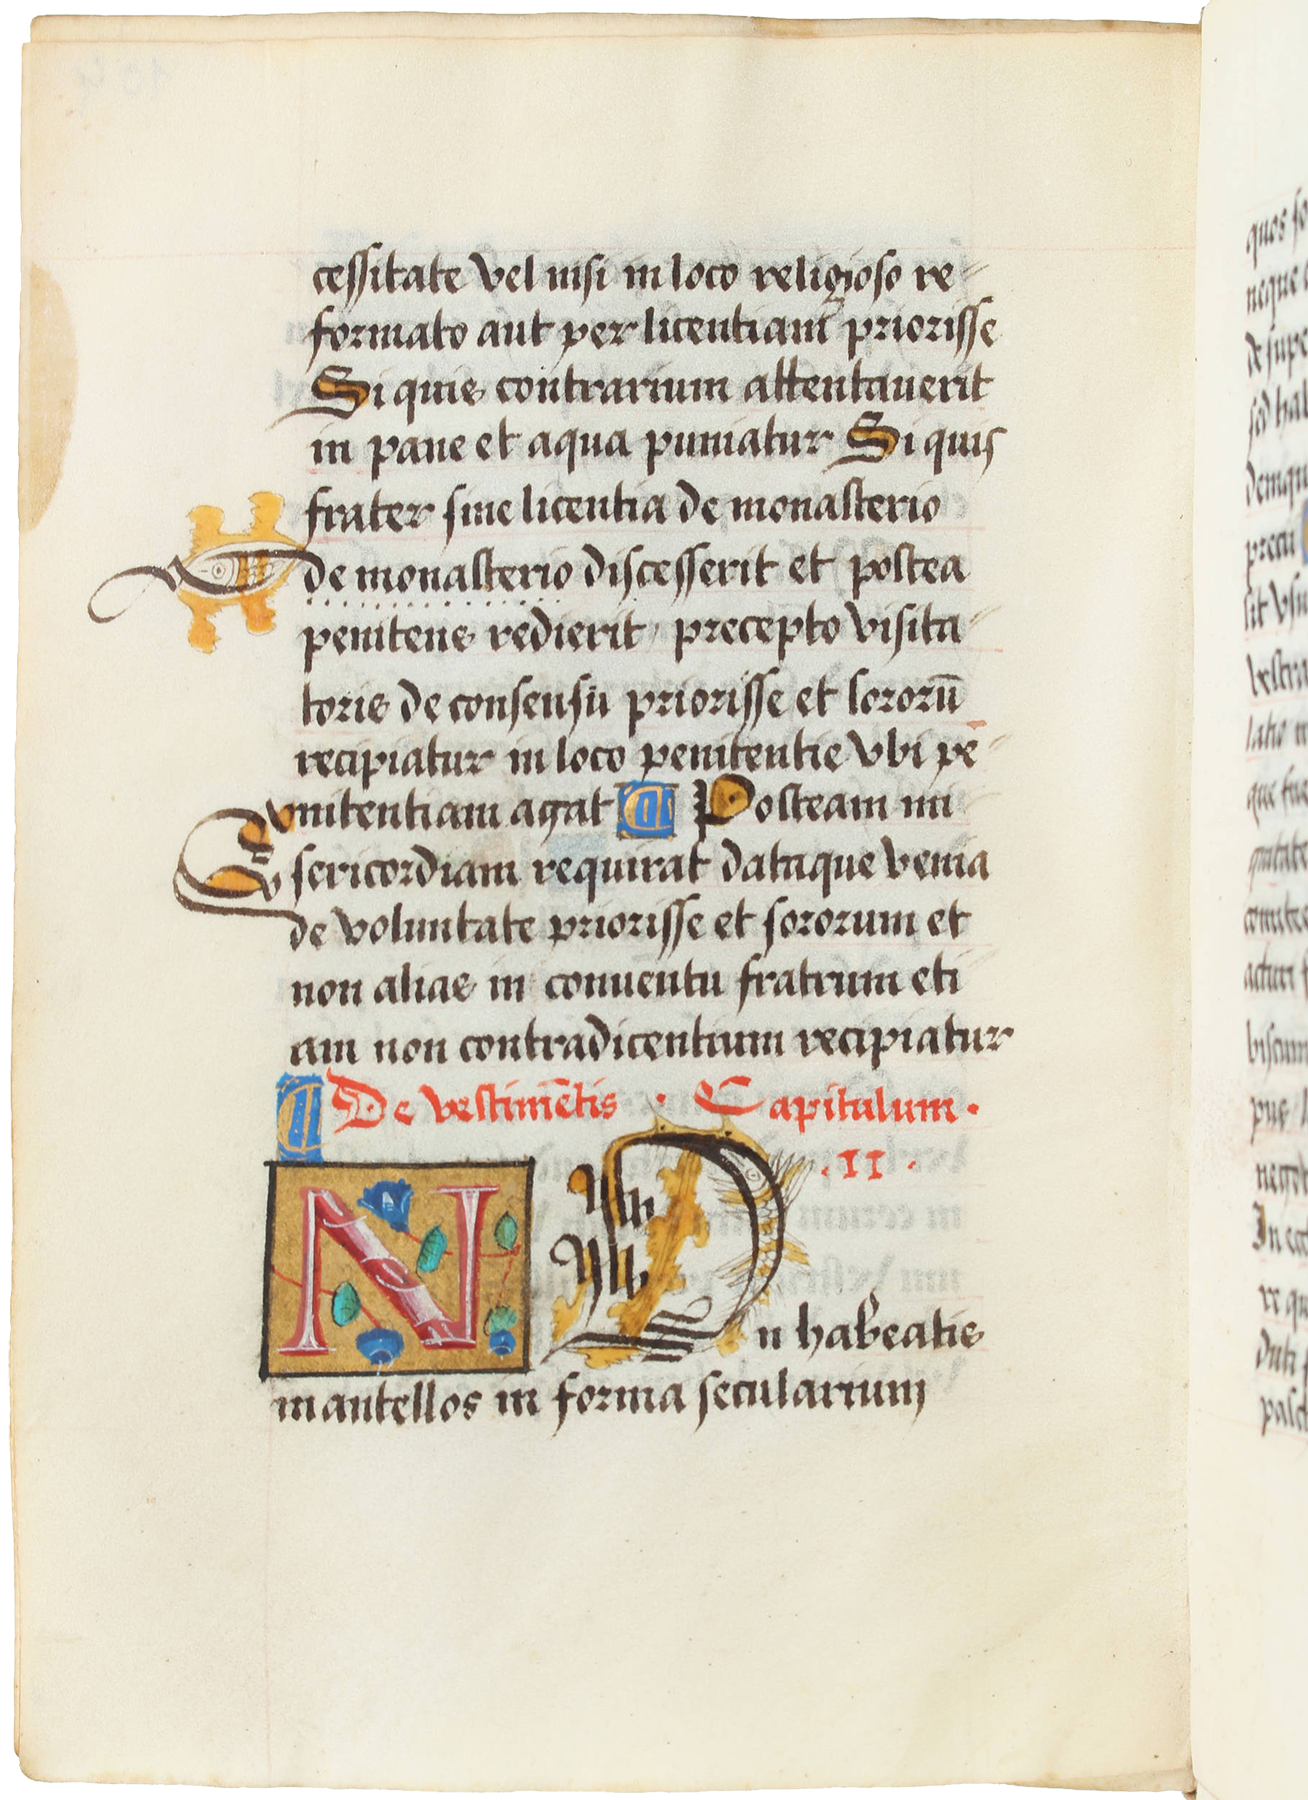 cessitate vel nisi in loco religioso re
formato aut per licentiam priorisse
Si quis contrarium attentauerit
in pane et aqua puniatur Si quis
frater sine licentia de monasterio
de monasterio discesserit et postea
penitens redierit, precepto visita
toris de consensu priorisse et sororū
recipiatur in loco penitentie vbi pe
nitentiam agat Posteam mi
sericordiam requirat dataque venia
de voluntate priorisse et sororum et
non alias in conuentu fratrum eti
am non contradicentium recipiatur
De vestimētis · Capitulum ·
· II ·
NOn habeatis
mantellos in forma secularium
quos
neque
de supe
precu
sit vsu
vestra
latio
que fue
acturi
biscum
negot
In
re qu